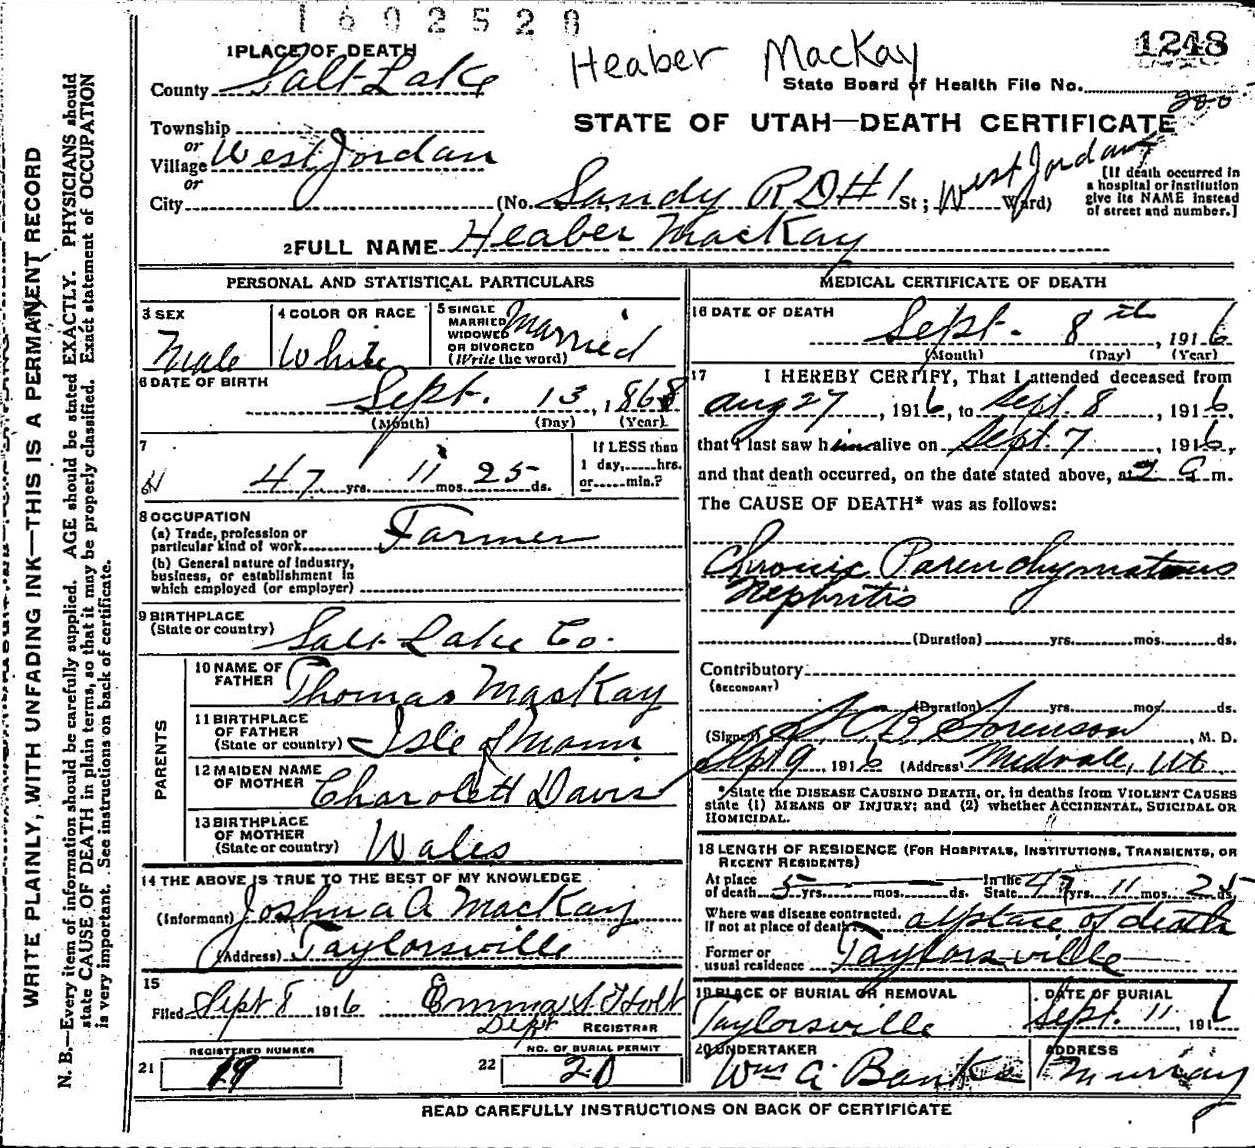 1602528
Heaber MacKay
1248
1 PLACE OF DEATH
County Salt Lake
State Board of Health File No.
200
Township
or
Village West Jordan
or
City
STATE OF UTAH—DEATH CERTIFICATE
(No. Sandy RD#1 St; West Jordan Ward)
[If death occurred in
a hospital or institution
give its NAME instead
of street and number.]
2 FULL NAME Heaber MacKay
PERSONAL AND STATISTICAL PARTICULARS
3 SEX
Male
4 COLOR OR RACE
White
5 SINGLE
MARRIED
WIDOWED
OR DIVORCED
(Write the word)
Married
6 DATE OF BIRTH
Sept. 13, 1868
(Month) (Day) (Year)
7
47 yrs. 11 mos. 25 ds.
If LESS than
1 day,......hrs.
or......min.?
8 OCCUPATION
(a) Trade, profession or
particular kind of work Farmer
(b) General nature of industry,
business, or establishment in
which employed (or employer)
9 BIRTHPLACE
(State or country) Salt Lake Co.
PARENTS
10 NAME OF
FATHER Thomas MacKay
11 BIRTHPLACE
OF FATHER
(State or country) Isle of Mann
12 MAIDEN NAME
OF MOTHER Charolett Davis
13 BIRTHPLACE
OF MOTHER
(State or country) Wales
14 THE ABOVE IS TRUE TO THE BEST OF MY KNOWLEDGE
(Informant) Joshua A MacKay
(Address) Taylorsville
15
Filed Sept 8 1916 Emma S Holt
Dept REGISTRAR
21 REGISTERED NUMBER
19
22 NO. OF BURIAL PERMIT
20
MEDICAL CERTIFICATE OF DEATH
16 DATE OF DEATH
Sept. 8th, 1916
(Month) (Day) (Year)
17 I HEREBY CERTIFY, That I attended deceased from
Aug 27, 1916, to Sept. 8, 1916
that I last saw him alive on Sept. 7, 1916,
and that death occurred, on the date stated above, at 2 a m.
The CAUSE OF DEATH* was as follows:
Chronic Parenchymatous
Nephritis
(Duration) yrs. mos. ds.
Contributory
(SECONDARY)
(Duration) yrs. mos. ds.
(Signed) B Sorenson, M. D.
Sept 9, 1916 (Address) Midvale, Ut.
*State the DISEASE CAUSING DEATH, or, in deaths from VIOLENT CAUSES
state (1) MEANS OF INJURY; and (2) whether ACCIDENTAL, SUICIDAL OR
HOMICIDAL.
18 LENGTH OF RESIDENCE (FOR HOSPITALS, INSTITUTIONS, TRANSIENTS, OR
RECENT RESIDENTS)
At place
of death 5 yrs. mos. ds. In the
State 47 yrs. 11 mos. 25 ds.
Where was disease contracted,
If not at place of death? at place of death
Former or
usual residence Taylorsville
19 PLACE OF BURIAL OR REMOVAL
Taylorsville
DATE OF BURIAL
Sept. 11, 1916
20 UNDERTAKER
Wm A. Banks
ADDRESS
Murray
READ CAREFULLY INSTRUCTIONS ON BACK OF CERTIFICATE
WRITE PLAINLY, WITH UNFADING INK—THIS IS A PERMANENT RECORD
N. B.—Every item of information should be carefully supplied. AGE should be stated EXACTLY. PHYSICIANS should
state CAUSE OF DEATH in plain terms, so that it may be properly classified. Exact statement of OCCUPATION
is very important. See instructions on back of certificate.